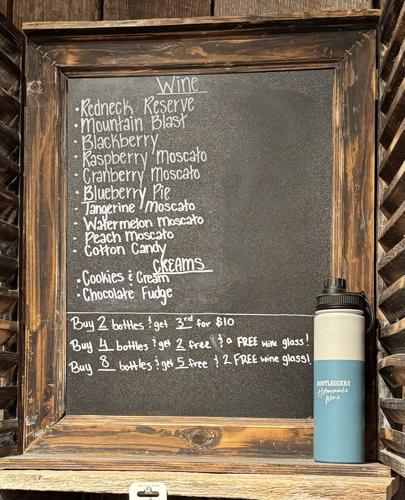 Wine
• Redneck Reserve
• Mountain Blast
• Blackberry
• Raspberry Moscato
• Cranberry Moscato
• Blueberry Pie
• Tangerine Moscato
• Watermelon Moscato
• Peach Moscato
• Cotton Candy
CREAMS
• Cookies & Cream
• Chocolate Fudge
Buy 2 bottles & get 3rd for $10
Buy 4 bottles & get 2 free & a FREE wine glass!
Buy 8 bottles & get 5 free & 2 FREE wine glass!
BOOTLEGGERS
Homemade
Wine